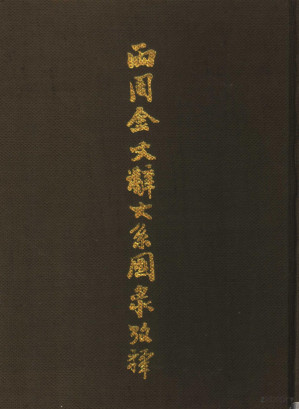 兩周金文辭大系圖录攷釋